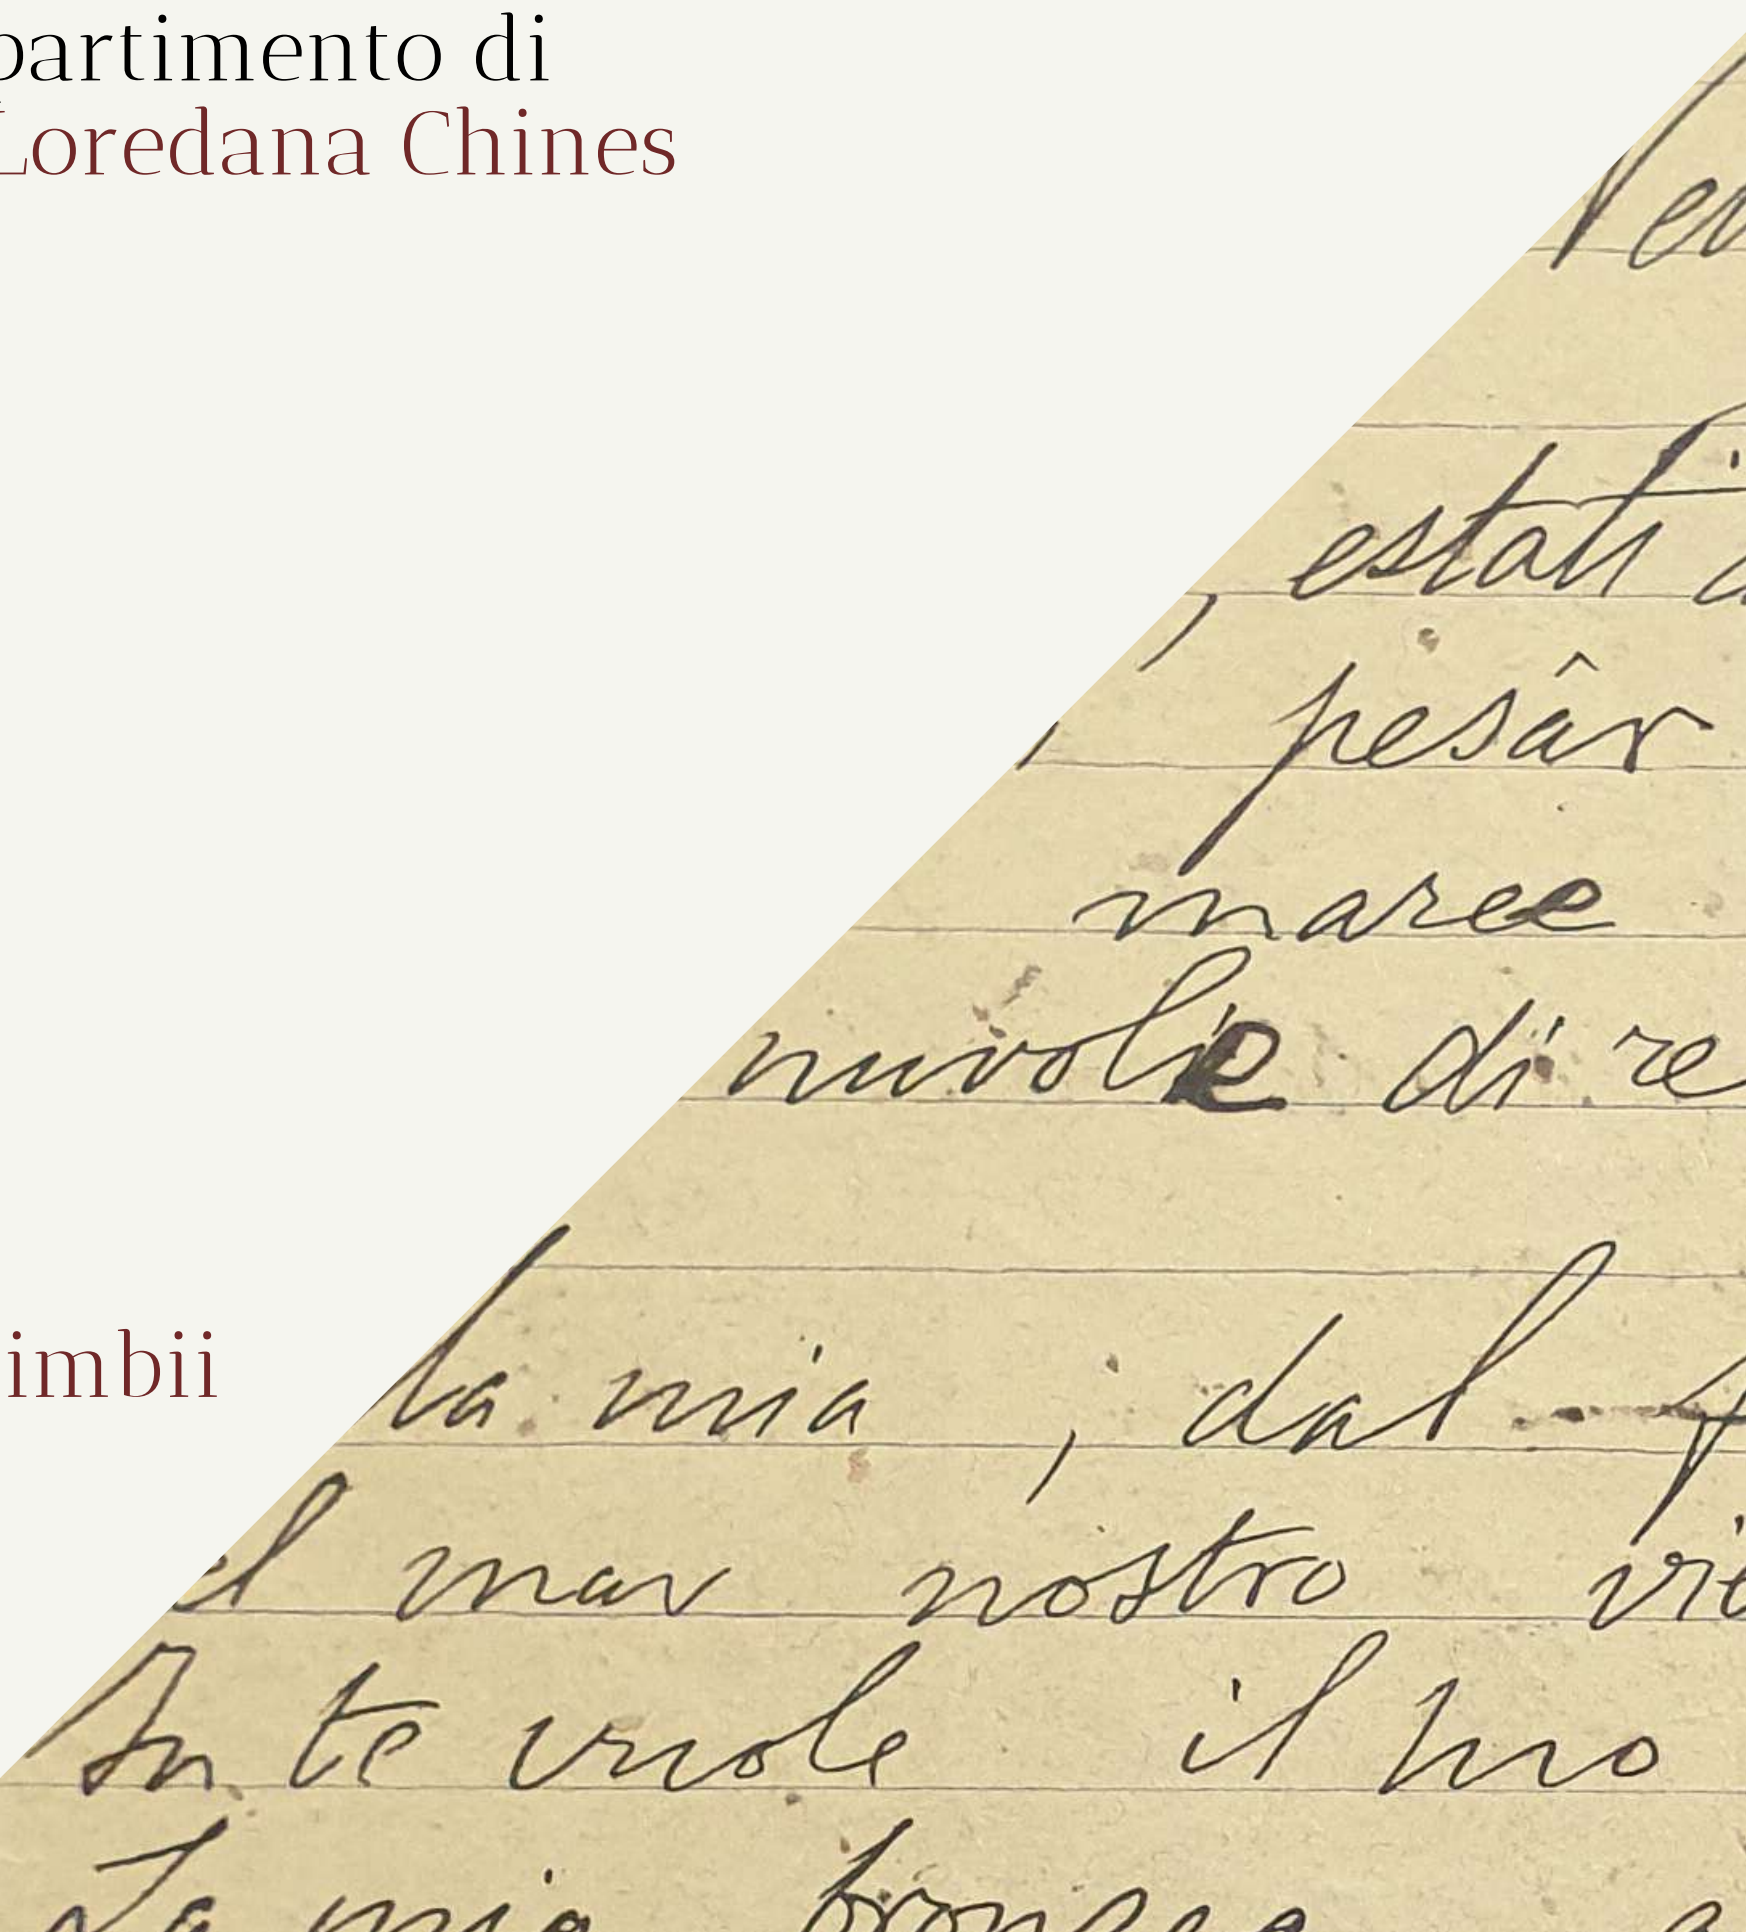 partimento di
Loredana Chines
, estati
, pesâr
maree
nuvole di re
imbii
la mia , dal f
el mar nostro vie
In te vuole il tuo
La mia bronzea